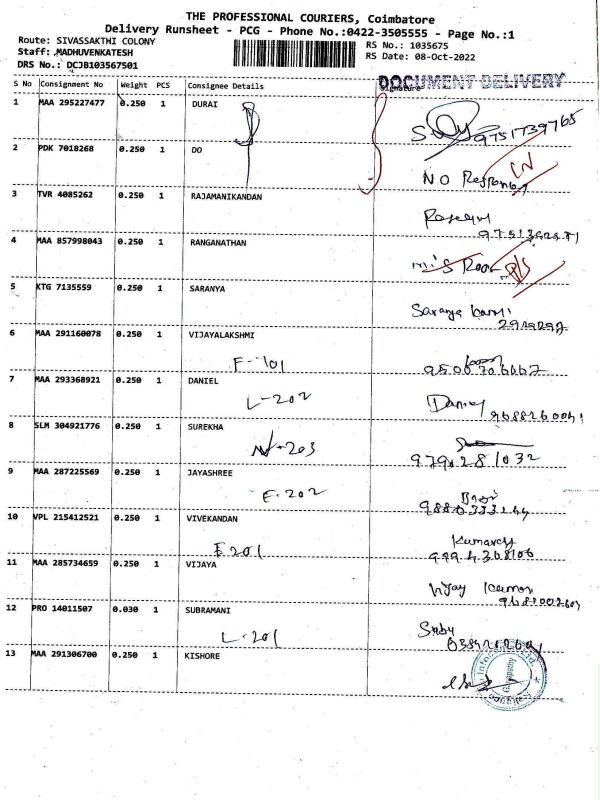 THE PROFESSIONAL COURIERS, Coimbatore
Delivery Runsheet - PCG - Phone No.:0422-3505555 - Page No.:1
Route: SIVASSAKTHI COLONY
RS No.: 1035675
Staff: .MADHUVENKATESH
RS Date: 08-Oct-2022
DRS No.: DCJB103567501
DOCUMENT DELIVERY
S No Consignment No Weight PCS Consignee Details Signature
1 MAA 295227477 0.250 1 DURAI
9751739765
2 PDK 7018268 0.250 1 DO
NO Response
3 TVR 4085262 0.250 1 RAJAMANIKANDAN
4 MAA 857998043 0.250 1 RANGANATHAN
5 KTG 7135559 0.250 1 SARANYA
Saranya
6 MAA 291160078 0.250 1 VIJAYALAKSHMI
F-101
7 MAA 293368921 0.250 1 DANIEL
L-202 Daniel
8 SLM 304921776 0.250 1 SUREKHA
N-203 979281032
9 MAA 287225569 0.250 1 JAYASHREE
E-202
10 VPL 215412521 0.250 1 VIVEKANDAN
Kumaresh
E201
11 MAA 285734659 0.250 1 VIJAYA
Vijay Kumar
12 PRO 14011507 0.030 1 SUBRAMANI
L-201
13 MAA 291306700 0.250 1 KISHORE